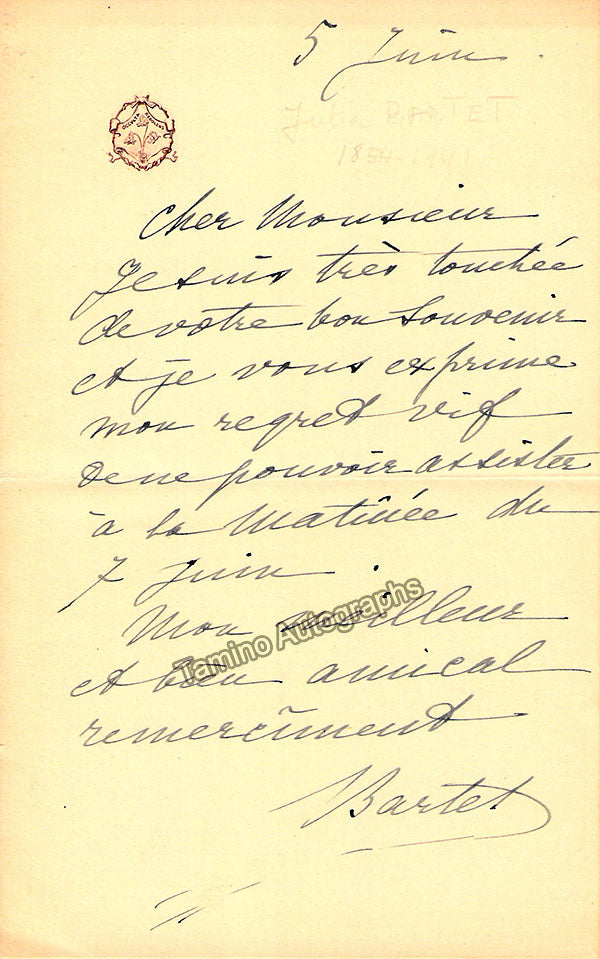 5 Juin.
Julia BARTET
1854-1941
Cher Monsieur
Je suis très touchée
de votre bon Souvenir
et je vous exprime
mon regret vif
de ne pouvoir assister
à la Matinée du
7 Juin.
Mon meilleur
Tamino Autographs
et bien amical
remerciment
Bartet